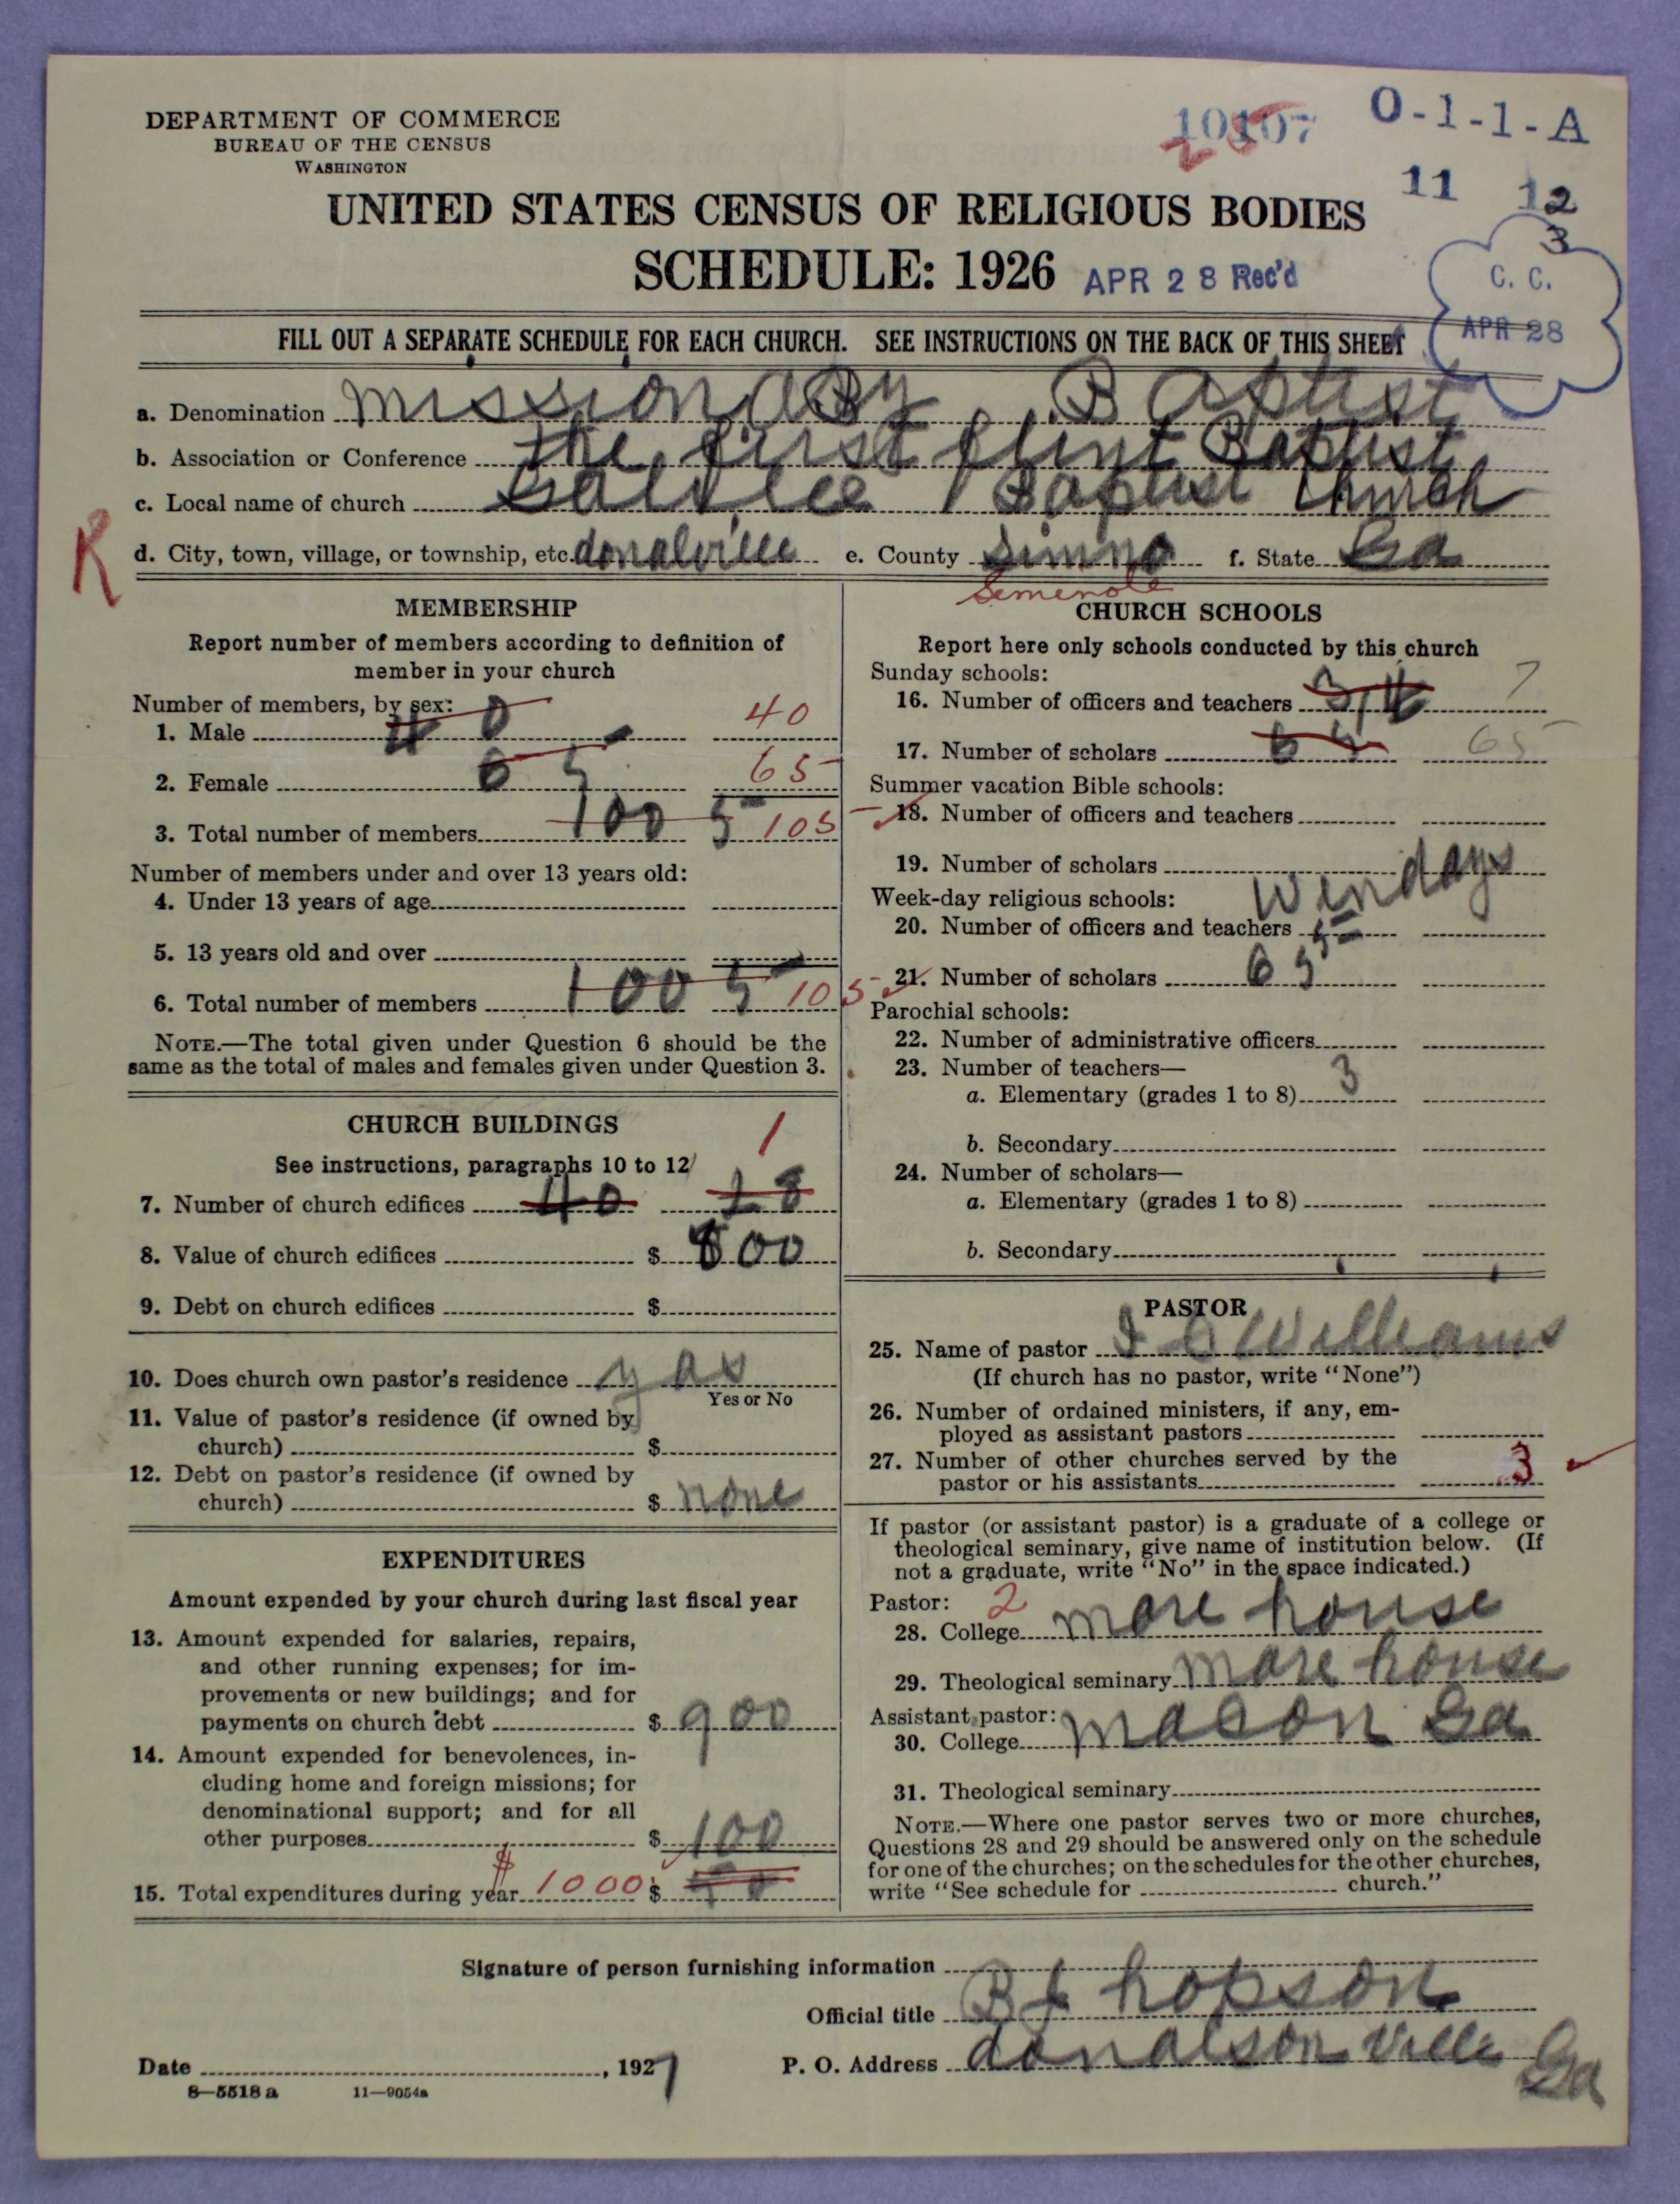 DEPARTMENT OF COMMERCE
BUREAU OF THE CENSUS
WASHINGTON
10107
O-1-1-A
11 12
3
UNITED STATES CENSUS OF RELIGIOUS BODIES
SCHEDULE: 1926 APR 28 Rec'd
C. C.
APR 28
FILL OUT A SEPARATE SCHEDULE FOR EACH CHURCH. SEE INSTRUCTIONS ON THE BACK OF THIS SHEET
a. Denomination missionary Baptist
b. Association or Conference the first flint Baptist
c. Local name of church Baptist Church
R
d. City, town, village, or township, etc. donalville e. County f. State Ga
Semenole
MEMBERSHIP
Report number of members according to definition of
member in your church
Number of members, by sex:
1. Male 40 40
2. Female 65 65
3. Total number of members 100 5 105
Number of members under and over 13 years old:
4. Under 13 years of age
5. 13 years old and over
6. Total number of members 100 5 105
NOTE.—The total given under Question 6 should be the
same as the total of males and females given under Question 3.
CHURCH BUILDINGS
See instructions, paragraphs 10 to 12
1
7. Number of church edifices 40 18
8. Value of church edifices $ 800
9. Debt on church edifices $
10. Does church own pastor's residence yas
Yes or No
11. Value of pastor's residence (if owned by
church) $
12. Debt on pastor's residence (if owned by
church) $ none
EXPENDITURES
Amount expended by your church during last fiscal year
13. Amount expended for salaries, repairs,
and other running expenses; for im-
provements or new buildings; and for
payments on church debt $ 900
14. Amount expended for benevolences, in-
cluding home and foreign missions; for
denominational support; and for all
other purposes $ 100
15. Total expenditures during year $1000 $
CHURCH SCHOOLS
Report here only schools conducted by this church
Sunday schools:
16. Number of officers and teachers 7
17. Number of scholars 65 65
Summer vacation Bible schools:
18. Number of officers and teachers
19. Number of scholars
Week-day religious schools: Wendays
20. Number of officers and teachers
21. Number of scholars 65
Parochial schools:
22. Number of administrative officers
23. Number of teachers—
a. Elementary (grades 1 to 8) 3
b. Secondary
24. Number of scholars—
a. Elementary (grades 1 to 8)
b. Secondary
PASTOR
25. Name of pastor Williams
(If church has no pastor, write "None")
26. Number of ordained ministers, if any, em-
ployed as assistant pastors
27. Number of other churches served by the
pastor or his assistants 3
If pastor (or assistant pastor) is a graduate of a college or
theological seminary, give name of institution below. (If
not a graduate, write "No" in the space indicated.)
Pastor: 2
28. College more house
29. Theological seminary more house
Assistant pastor:
30. College macon Ga
31. Theological seminary
NOTE.—Where one pastor serves two or more churches,
Questions 28 and 29 should be answered only on the schedule
for one of the churches; on the schedules for the other churches,
write "See schedule for church."
Signature of person furnishing information
Official title B J hopson
Date , 1927 P. O. Address donalson Ville Ga
8—5518 a 11—9054a